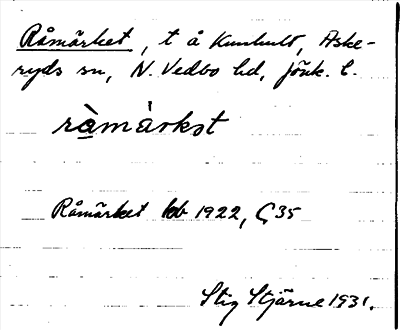 Råmärket, t å Kumhult, Aske-
ryds sn, N. Vedbo hd, Jönk. l.
ràmàrkət
Råmärket kb 1922, C 35
Stig Stjärne 1931.